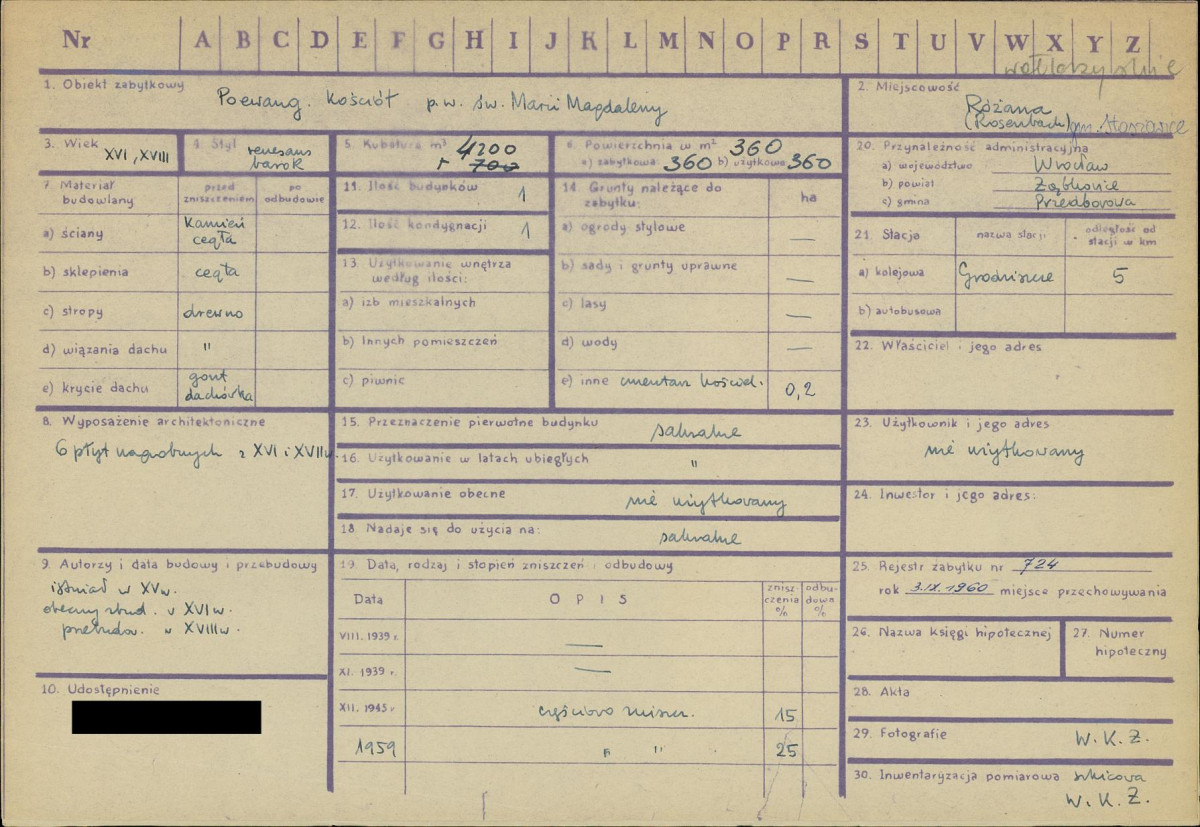 Nr A B C D E F G H I J K L M N O P R S T U V W X Y Z
1. Obiekt zabytkowy
Poewang. Kościół p.w. św. Marii Magdaleny
2. Miejscowość
Różana
(Rosenbach) gm. Stoszowice
3. Wiek
XVI, XVIII
4. Styl renesans
barok
5. Kubatura m³ 4200
r 700
6. Powierzchnia w m² 360
a) zabytkowa 360 b) użytkowa 360
20. Przynależność administracyjna
a) województwo Wrocław
b) powiat Ząbkowice
c) gmina Przedborowa
7. Materiał budowlany
przed zniszczeniem
po odbudowie
a) ściany Kamień
cegła
b) sklepienia cegła
c) stropy drewno
d) wiązania dachu "
e) krycie dachu gont
dachówka
11. Ilość budynków 1
12. Ilość kondygnacji 1
13. Użytkowanie wnętrza
według ilości:
a) izb mieszkalnych
b) Innych pomieszczeń
c) piwnic
14. Grunty należące do
zabytku:
ha
a) ogrody stylowe —
b) sady i grunty uprawne —
c) lasy —
d) wody —
e) inne cmentarz kościel. 0,2
21. Stacja
nazwa stacji
odległość od
stacji w km
a) kolejowa Grodziszcze 5
b) autobusowa
22. Właściciel i jego adres
8. Wyposażenie architektoniczne
6 płyt nagrobnych z XVI i XVII w.
15. Przeznaczenie pierwotne budynku sakralne
16. Użytkowanie w latach ubiegłych "
17. Użytkowanie obecne nie użytkowany
18. Nadaje się do użycia na: sakralne
23. Użytkownik i jego adres
nie użytkowany
24. Inwestor i jego adres:
9. Autorzy i data budowy i przebudowy
istniał w XV w.
obecny zbud. w XVI w.
przebudow. w XVIII w.
10. Udostępnienie
19. Data, rodzaj i stopień zniszczeń i odbudowy
Data
O P I S
znisz-
czenia
%
odbu-
dowa
%
VIII. 1939 r. —
XI. 1939 r. —
XII. 1945 r częściowo zniszcz. 15
1959 " " 25
25. Rejestr zabytku nr 724
rok 3.IX.1960 miejsce przechowywania
26. Nazwa księgi hipotecznej
27. Numer
hipoteczny
28. Akta
29. Fotografie W. K. Z.
30. Inwentaryzacja pomiarowa szkicowa
W. K. Z.